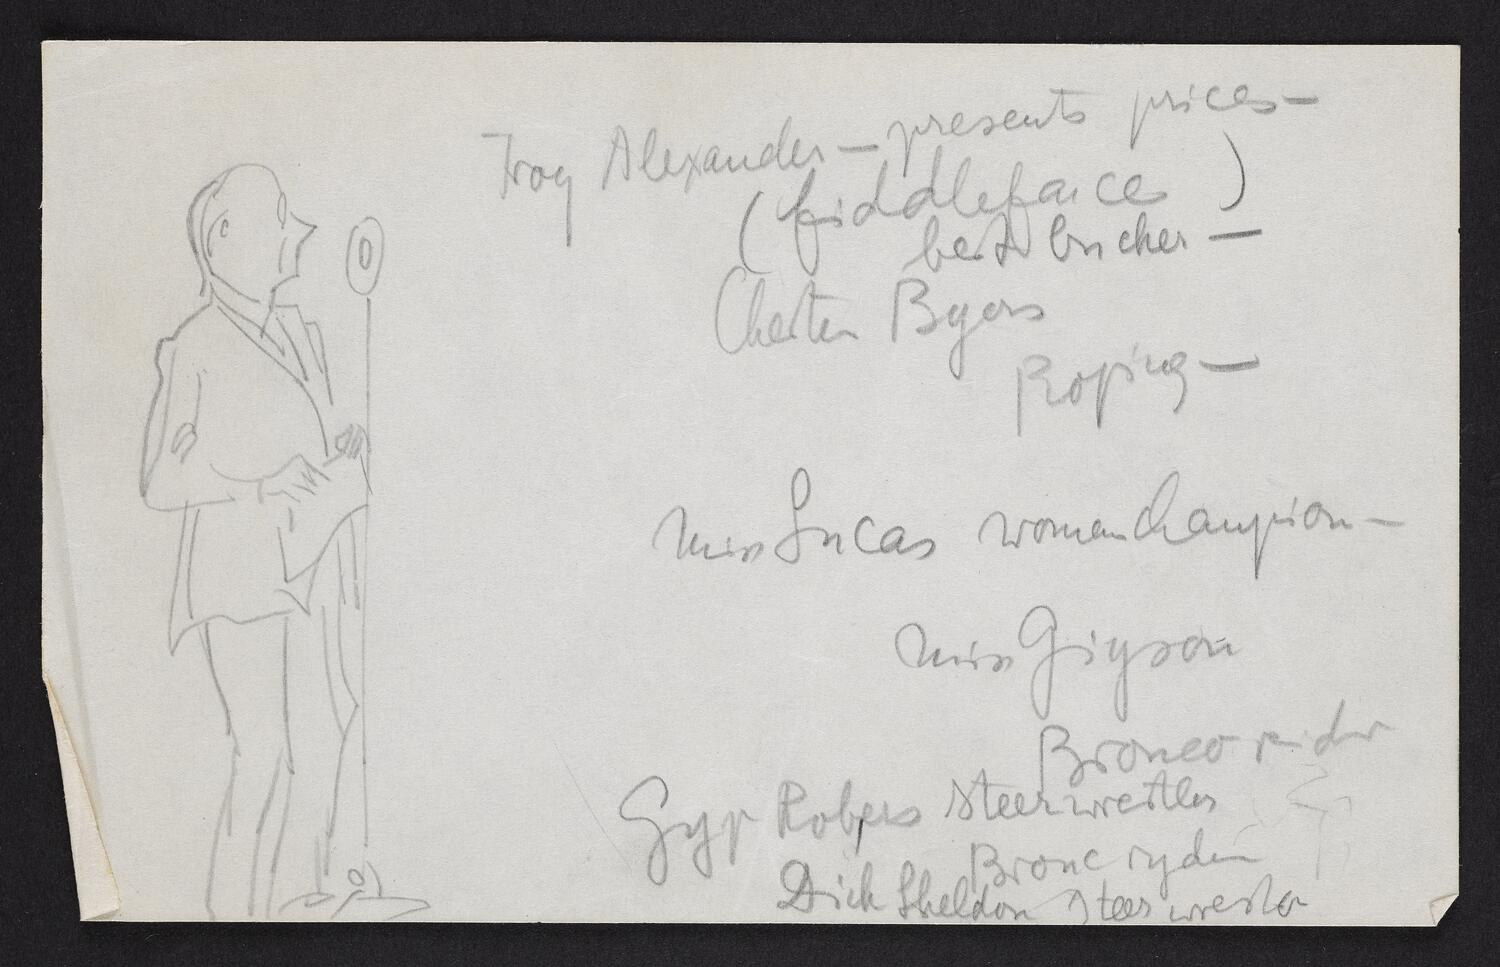 Troy Alexander — presents prices —
(fiddleface)
best bucker —
Chester Byers
Roping —
Miss Lucas woman champion —
Miss Gigson
Bronco rider
Gyp Robers Steerwrestler
Bronc ryder
Dick Sheldon Steer wrestler